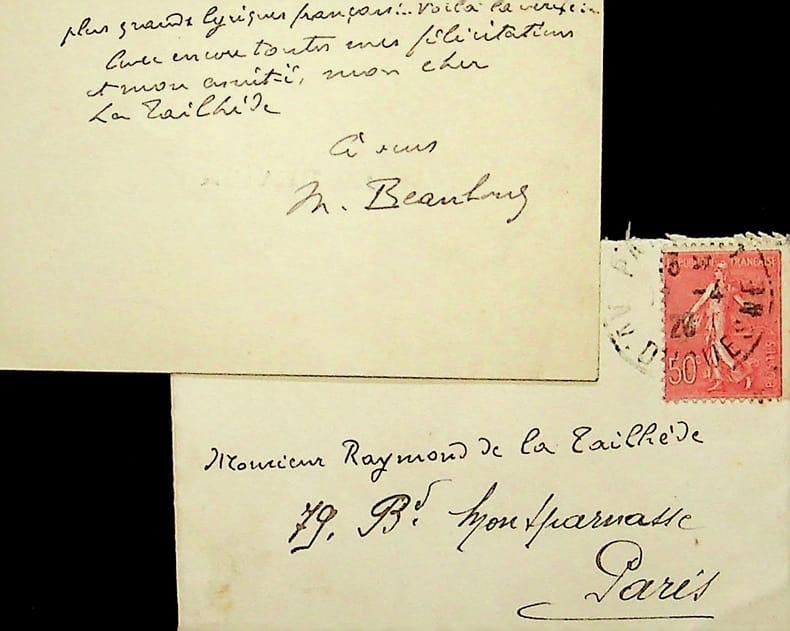 plus grands lyriques français... Voilà la vérité...
Avec encore toutes mes félicitations
et mon amitié, mon cher
La Tailhède
à vous
M. Beaubourg
FRANÇAISE
50
AV
D'ORLEANS
Monsieur Raymond de la Tailhède
79. Bd. Montparnasse
Paris